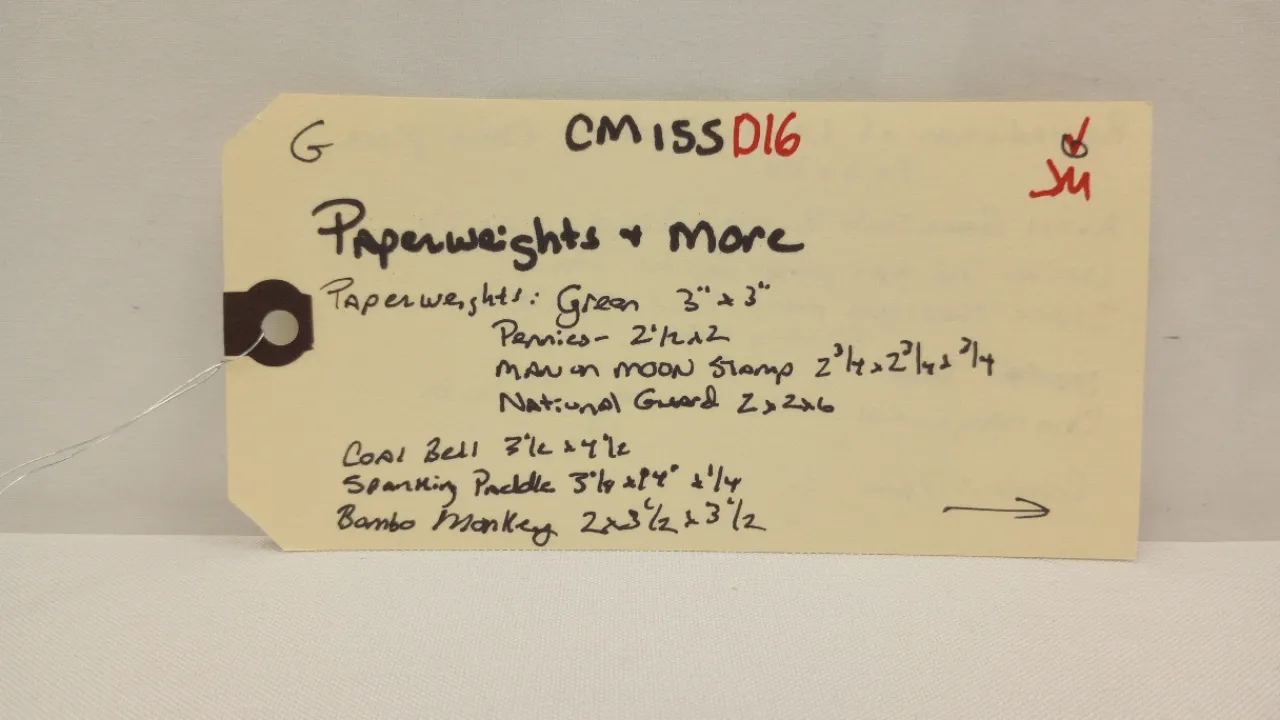 G CM155D16
JM
Paperweights + More
Paperweights: Green 3" x 3"
Pennies- 2 1/2 x 2
MAN on MOON Stamp 2 3/4 x 2 3/4 x 3/4
National Guard 2 x 2 x 6
Coal Bell 3 1/2 x 4 1/2
Spanking Paddle x 1/4
Bambo Monkey 2 x 3 1/2 x 3 1/2